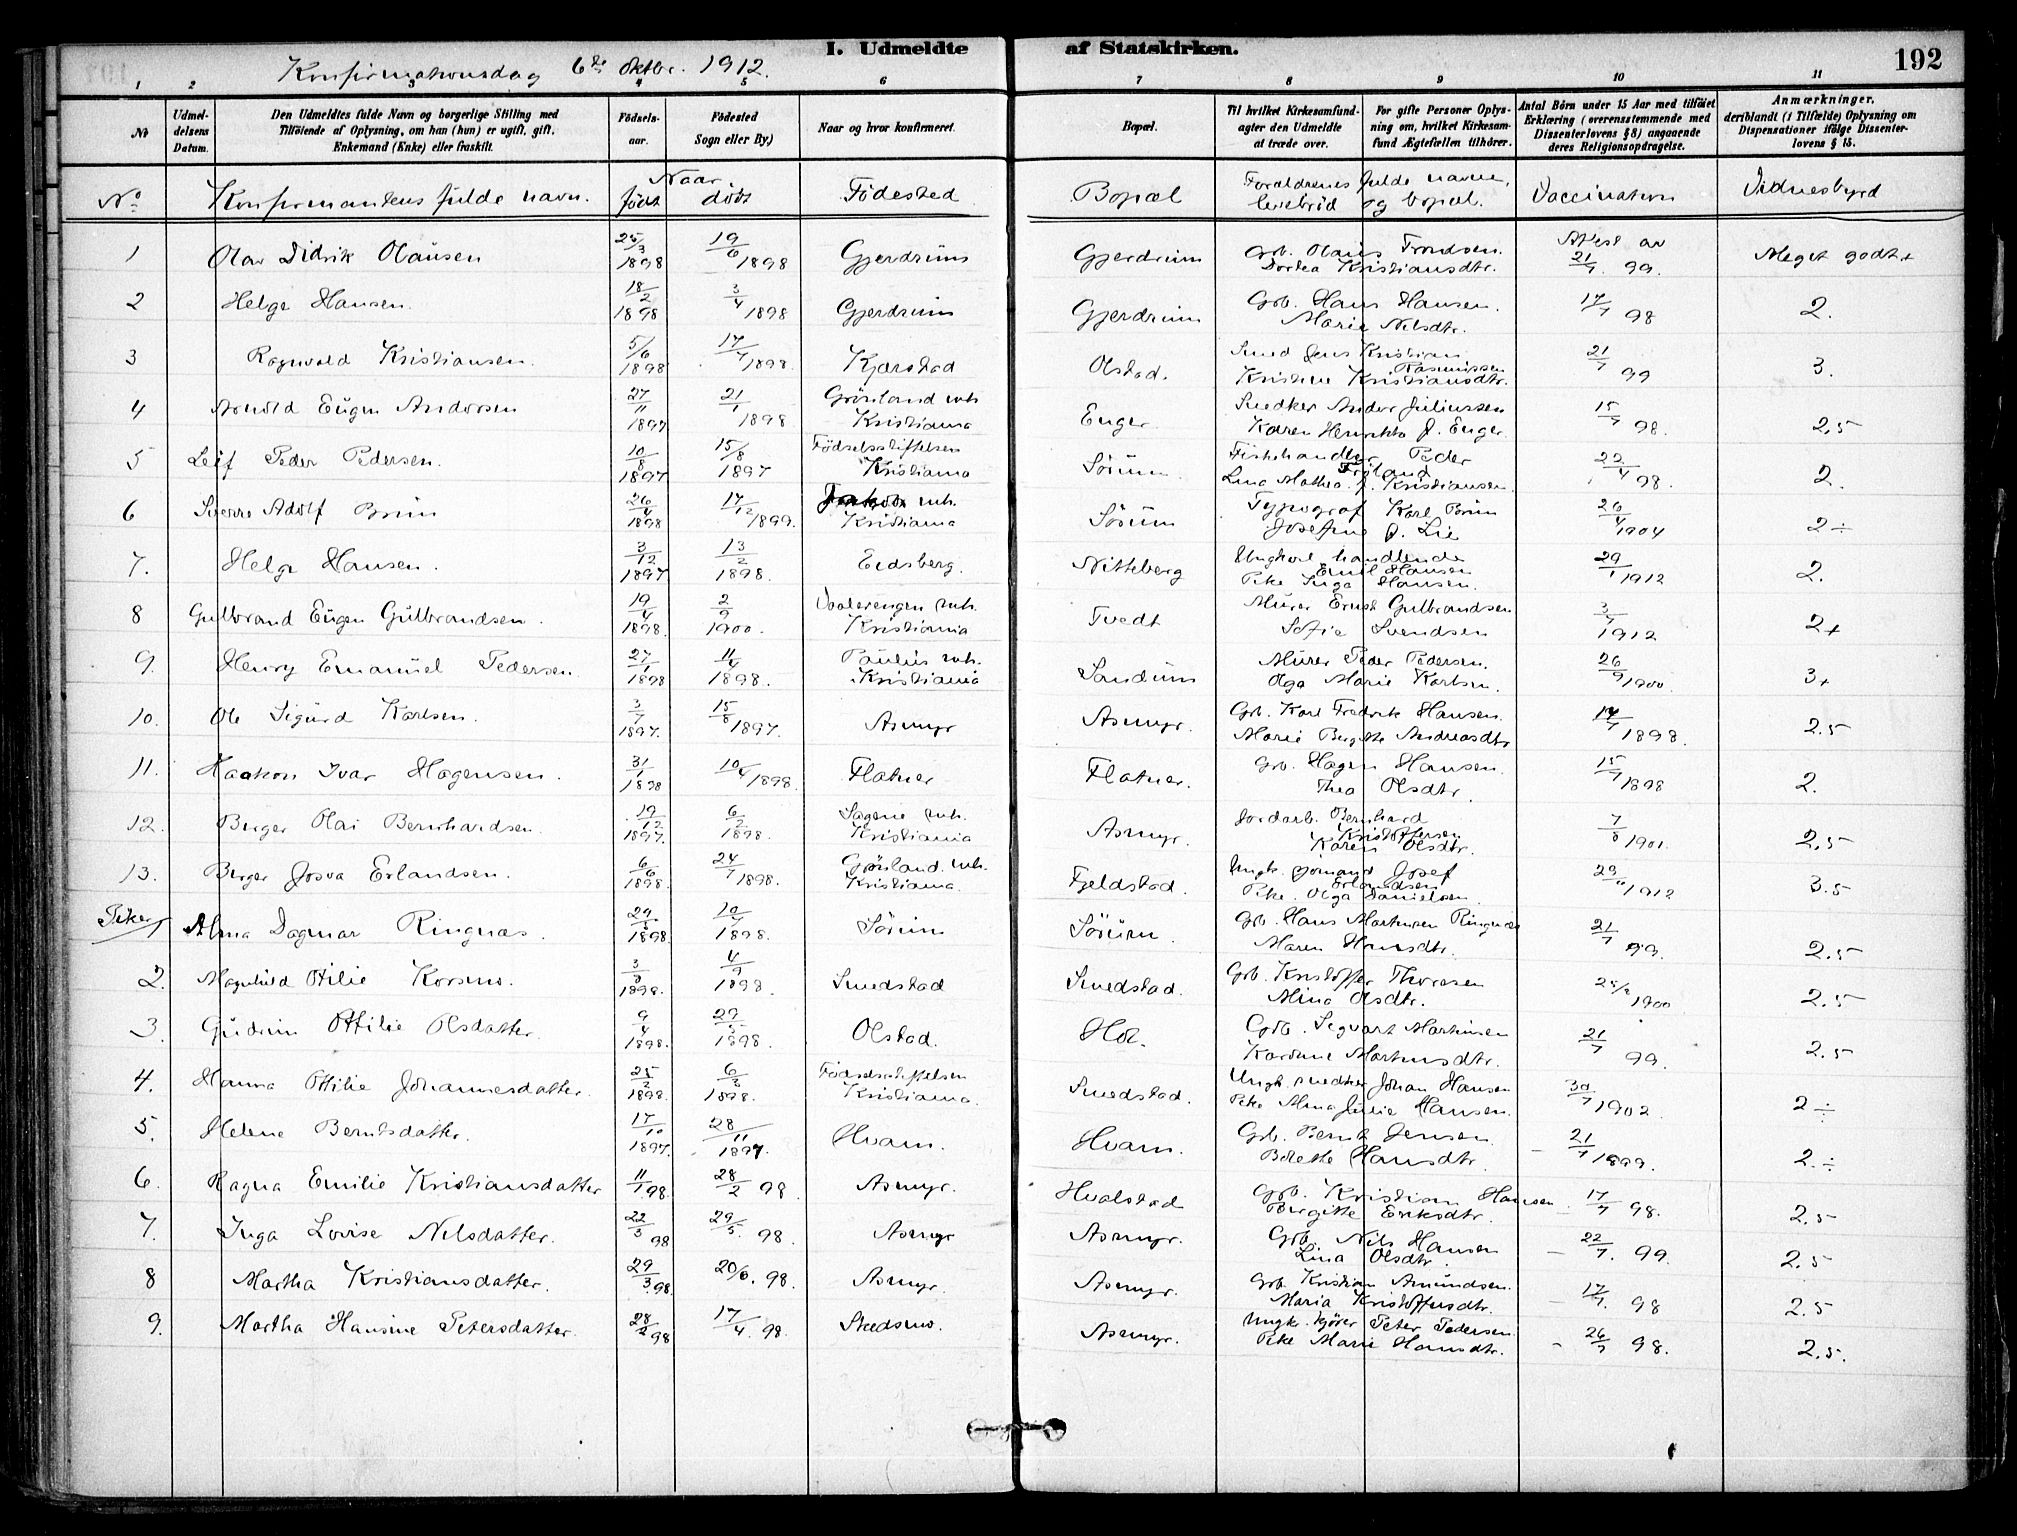 I. Udmeldte af Statskirken.
192
Konfirmationsdag 6te Oktbr. 1912.
1 2 3 4 5 6 7 8 9 10 11
No
Udmeldelsens Datum.
Den Udmeldtes fulde Navn og borgerlige Stilling med
Tilføiende af Oplysning, om han (hun) er ugift, gift,
Enkemand (Enke) eller fraskilt.
Fødselsaar.
Fødested
Sogn eller By.)
Naar og hvor konfirmeret.
Bopæl.
Til hvilket Kirkesamfund-
agter den Udmeldte
at træde over.
For gifte Personer Oplys-
ning om, hvilket Kirkesam-
fund Ægtefællen tilhører.
Antal Børn under 15 Aar med tilføiet
Erklæring (overensstemmende med
Dissenterlovens § 8) angaaende
deres Religionsopdragelse.
Anmærkninger,
deriblandt (i Tilfælde) Oplysning om
Dispensationer ifølge Dissenter-
lovens § 15.
No Konfirmantens fulde navn. Naar født døbt Födested Bopæl Forældrenes fulde navne, levebröd og bopæl. Vaccination Vidnesbyrd
1 Olav Didrik Olausen 25/3 1898 19/6 1898 Gjerdrum Gjerdrum Grb. Olaus Trondsen. Dortea Kristiansdtr. Attest av 21/7. 99. Meget godt+
2 Helge Hansen. 18/2 1898 3/4 1898 Gjerdrum Gjerdrum Grb. Hans Hansen Marie Nilsdtr. 17/7 98 2.
3 Ragnvald Kristiansen. 5/6 1898 17/7 1898. Kjærstad Olstad. Smed Jens Kristian Rasmussen Kristine Kristiansdtr. 21/7 99 3.
4 Arnold Eugen Andersen 27/11 1897 21/1 1898 Grönland mh. Kristiania Enger Snedker Andor Juliussen Karen Henrikke f. Enger 15/7 98. 2,5
5 Leif Peder Pedersen. 10/8 1897 15/8 1897 Födselsstiftelsen Kristiania Sörum Fiskehandler Peder Fröland Lina Mathea f. Kristiansen. 22/4 98. 2.
6 Sverre Adolf Brun 26/4 1898 17/12 1899. mh. Kristiania Sörum Typograf Karl Brun Josefine f. Lie 26/4 1904 2 ÷
7. Helge Hansen. 3/12 1897 13/2 1898. Eidsberg. Nitteberg Ungkarl handlende Emil Hansen Pike Inga Hansen. 29/1 1912 2.
8 Gulbrand Eugen Gulbrandsen. 19/4 1898. 2/9 1900. Vaalerengen mh. Kristiania Tvedt Murer Ernst Gulbrandsen Sofie Svendsen 3/7 1912 2+
9. Henry Emanuel Pedersen. 27/1 1898 11/4 1898. Paulus mh. Kristiania Sandum Murer Peder Pedersen. Olga Marie Karlsen. 26/9 1900. 3+
10. Ole Sigurd Karlsen. 3/7 1897. 15/8 1897. Asmyr Asmyr. Grb. Karl Fredrik Hansen. Marie Birgitte Andreasdtr 17/7 1898. 2.5
11. Haakon Ivar Hagensen. 31/1 1898 10/4 1898. Flatner Flatner. Grb. Hagen Hansen. Thea Olsdtr. 15/7 1898 2.
12. Birger Olai Bernhardsen. 19/12 1897. 6/2 1898. Sagene mh. Kristiania Asmyr. Jordarb. Bernhard Kristoffersen Karen Olsdtr. 7/8 1901. 2,5
13. Birger Josva Erlandsen. 6/6 1898. 24/7 1898. Grönland. mh. Kristiania. Fjeldstad. Ungk. sjömand Josef Erlandsen Pike Olga Danielsen. 1912 3.5
Piker
1 Alma Dagmar Ringnæs. 1898. 10/7 1898. Sörum Sörum. Grb. Hans Martinsen Ringnæs Maren Hansdtr. 21/7 99. 2.5
2. Magnhild Otilie Korsmo. 1898. 4/9 1898. Smedstad Smedstad. Grb. Kristoffer Thoresen Alina Olsdtr. 1900 2.5
3. Gudrun Ottilie Olsdatter. 9/4 1898. 29/5 1898. Olstad. Hol. Grb. Segvart Martinsen Karoline Martinsdtr. 21/7 99. 2.5
4. Hanna Otilie Johannesdatter. 25/2 1898. 6/3 1898. Födselsstiftelsen Kristiania. Smedstad. Ungk. snedker Johan Hansen Pike Alma Julie Hansen. 30/7 1902. 2 ÷
5. Helene Berntsdatter. 17/10 1897. 28/11 1897. Hvam. Hvam. Grb. Bernt Jensen. Berethe Hansdtr. - 21/7 1899. 2. ÷
6. Ragna Emilie Kristiansdatter 11/1 98. 28/2 98 Asmyr. Hvalstad Grb. Kristian Hansen Birgitte Eriksdtr. - 17/7 98. 2.5
7. Inga Lovise Nilsdatter. 22/3 98 29/5. 98. Asmyr Asmyr. Grb. Nils Hansen Lina Olsdtr. - 22/7. 99. 2.5
8 Martha Kristiansdatter. 29/3. 98. 98. Asmyr. Asmyr. Grb. Kristian Amundsen. Maria Kristoffersdtr. - 17/7. 98 2.5
9. Martha Hansine Petersdatter. 28/2 98 17/4. 98. Skedsmo. Asmyr. Ungk. kjører Peter Pedersen. Pike Marie Hansdtr. - 26/7 98. 2.5.